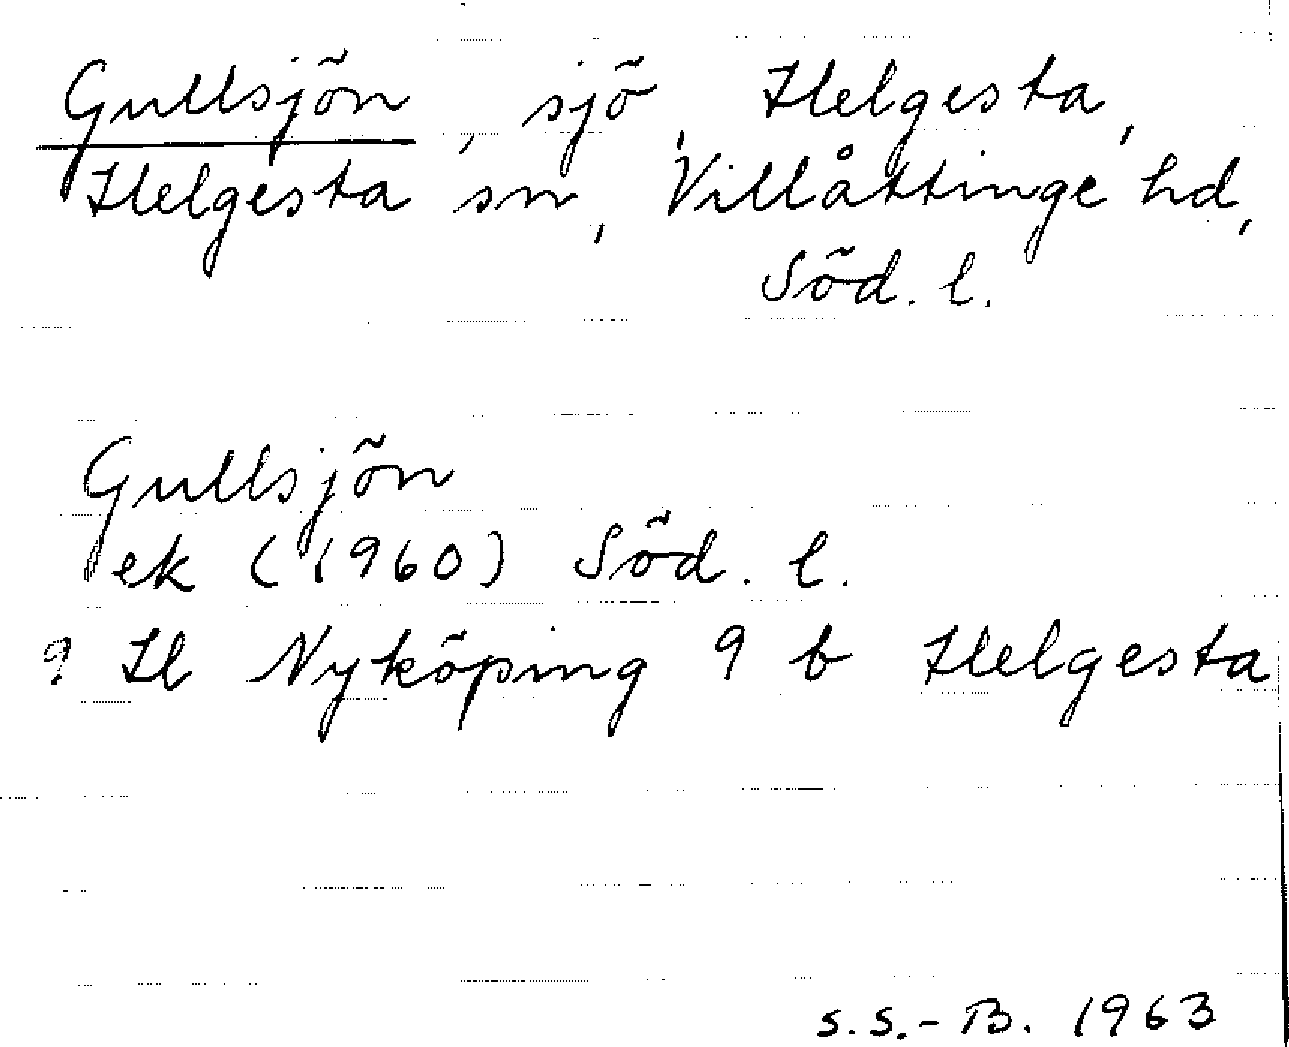 Gullsjön, sjö, Helgesta,
Helgesta sn, Villåttinge hd,
Söd. l.
Gullsjön
ek (1960) Söd. l.
9 Hl Nyköping 9 b Helgesta
S.S.-B. 1963